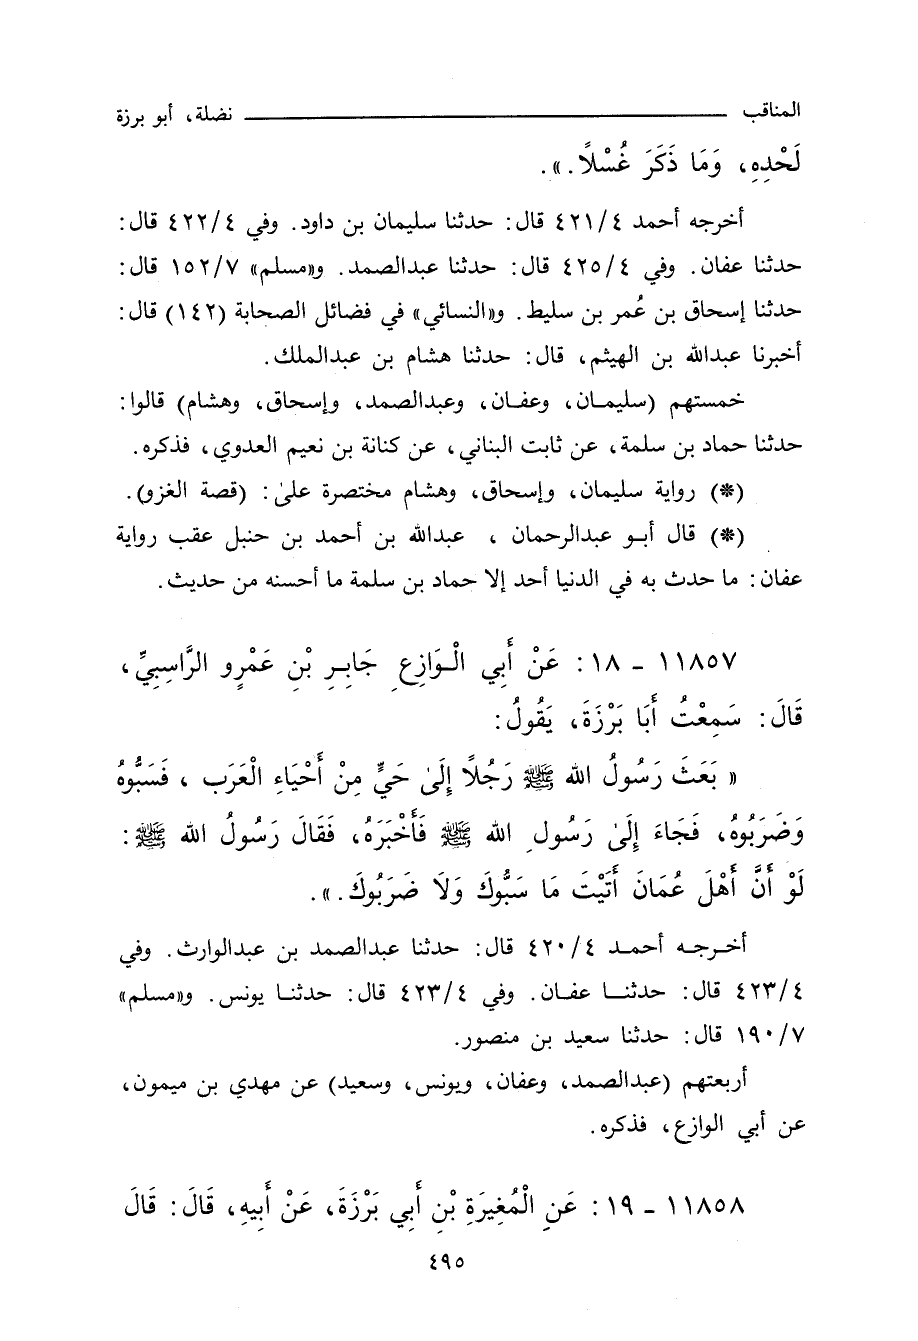 المناقب ــــــــ نضلة، أبو برزة
لَحْدِهِ، وَمَا ذَكَرَ غُسْلًا.».
أخرجه أحمد ٤٢١/٤ قال: حدثنا سليمان بن داود. وفي ٤٢٢/٤ قال:
حدثنا عفان. وفي ٤٢٥/٤ قال: حدثنا عبدالصمد. و«مسلم» ١٥٢/٧ قال:
حدثنا إسحاق بن عُمر بن سليط. و«النسائي» في فضائل الصحابة (١٤٢) قال:
أخبرنا عبدالله بن الهيثم، قال: حدثنا هشام بن عبدالملك.
خمستهم (سليمان، وعفان، وعبدالصمد، وإسحاق، وهشام) قالوا:
حدثنا حماد بن سلمة، عن ثابت البناني، عن كنانة بن نعيم العدوي، فذكره.
(*) رواية سليمان، وإسحاق، وهشام مختصرة علىٰ: (قصة الغزو).
(*) قال أبو عبدالرحمان ، عبدالله بن أحمد بن حنبل عقب رواية
عفان: ما حدث به في الدنيا أحد إلا حماد بن سلمة ما أحسنه من حديث.
١١٨٥٧ - ١٨: عَنْ أَبي الْوَازِعِ جَابِرِ بْنِ عَمْرٍو الرَّاسِبِيِّ،
قَالَ: سَمِعْتُ أَبَا بَرْزَةَ، يَقُولُ:
« بَعَثَ رَسُولُ الله ﷺ رَجُلًا إِلَىٰ حَيٍّ مِنْ أَحْيَاءِ الْعَرَبِ ، فَسَبُّوهُ
وَضَرَبُوهُ، فَجَاءَ إِلَىٰ رَسُولِ الله ﷺ فَأَخْبَرَهُ، فَقَالَ رَسُولُ الله ﷺ:
لَوْ أَنَّ أَهْلَ عُمَانَ أَتَيْتَ مَا سَبُّوكَ وَلَا ضَرَبُوكَ.».
أخرجه أحمد ٤٢٠/٤ قال: حدثنا عبدالصمد بن عبدالوارث. وفي
٤٢٣/٤ قال: حدثنا عفان. وفي ٤٢٣/٤ قال: حدثنا يونس. و«مسلم»
١٩٠/٧ قال: حدثنا سعيد بن منصور.
أربعتهم (عبدالصمد، وعفان، ويونس، وسعيد) عن مهدي بن ميمون،
عن أبي الوازع، فذكره.
١١٨٥٨ - ١٩: عَنِ الْمُغِيرَةِ بْنِ أَبي بَرْزَةَ، عَنْ أَبِيهِ، قَالَ: قَالَ
٤٩٥